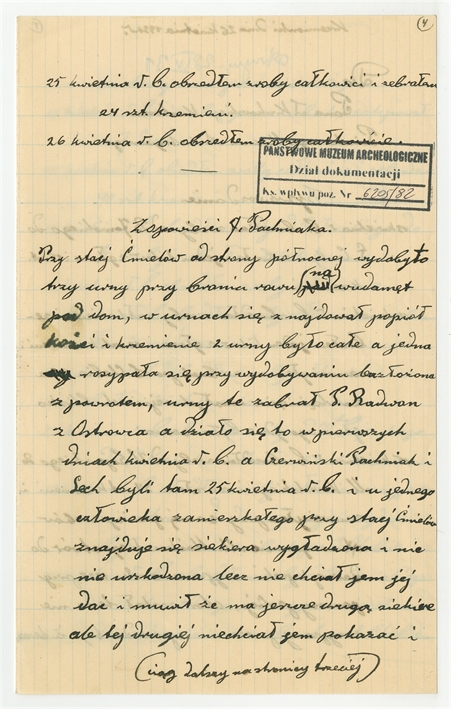 (4
25 kwietnia d. b. obszedłem zroby całkowici i zebrałem
24 szt. krzemieni.
26 kwietnia d. b. obszedłem zroby całkowicie.
PAŃSTWOWE MUZEUM ARCHEOLOGICZNE
Dział dokumentacji
Ks. wpływu poz. Nr 6205/82
Z opowieści J. Pachniaka.
Przy stacj Ćmielów od strany północnej wydobyto
trzy urny przy braniu rowu (na)
pod dom, w urnach się znajdował popiół
kości i krzemienie 2 urny było całe a jedna
rosypała się przy wydobywaniu bo złożona
z powrotem, urny te zabrał P. Radwan
z Ostrowca a działo się to w pierwszych
dniach kwietnia d. b. a Czerwiński Pachniak i
Lech byli tam 25 kwietnia d. b. i u jednego
człowieka zamieszkałego przy stacj Ćmielów
znajduje się siekiera wygładzona i nie
nie uszkodzona lecz nie chciał jem jej
dać i muwił że ma jeszcze drugą siekiere
ale tej drugiej niechciał jem pokazać i
(ciąg dalszy na stronicy trzeciej)